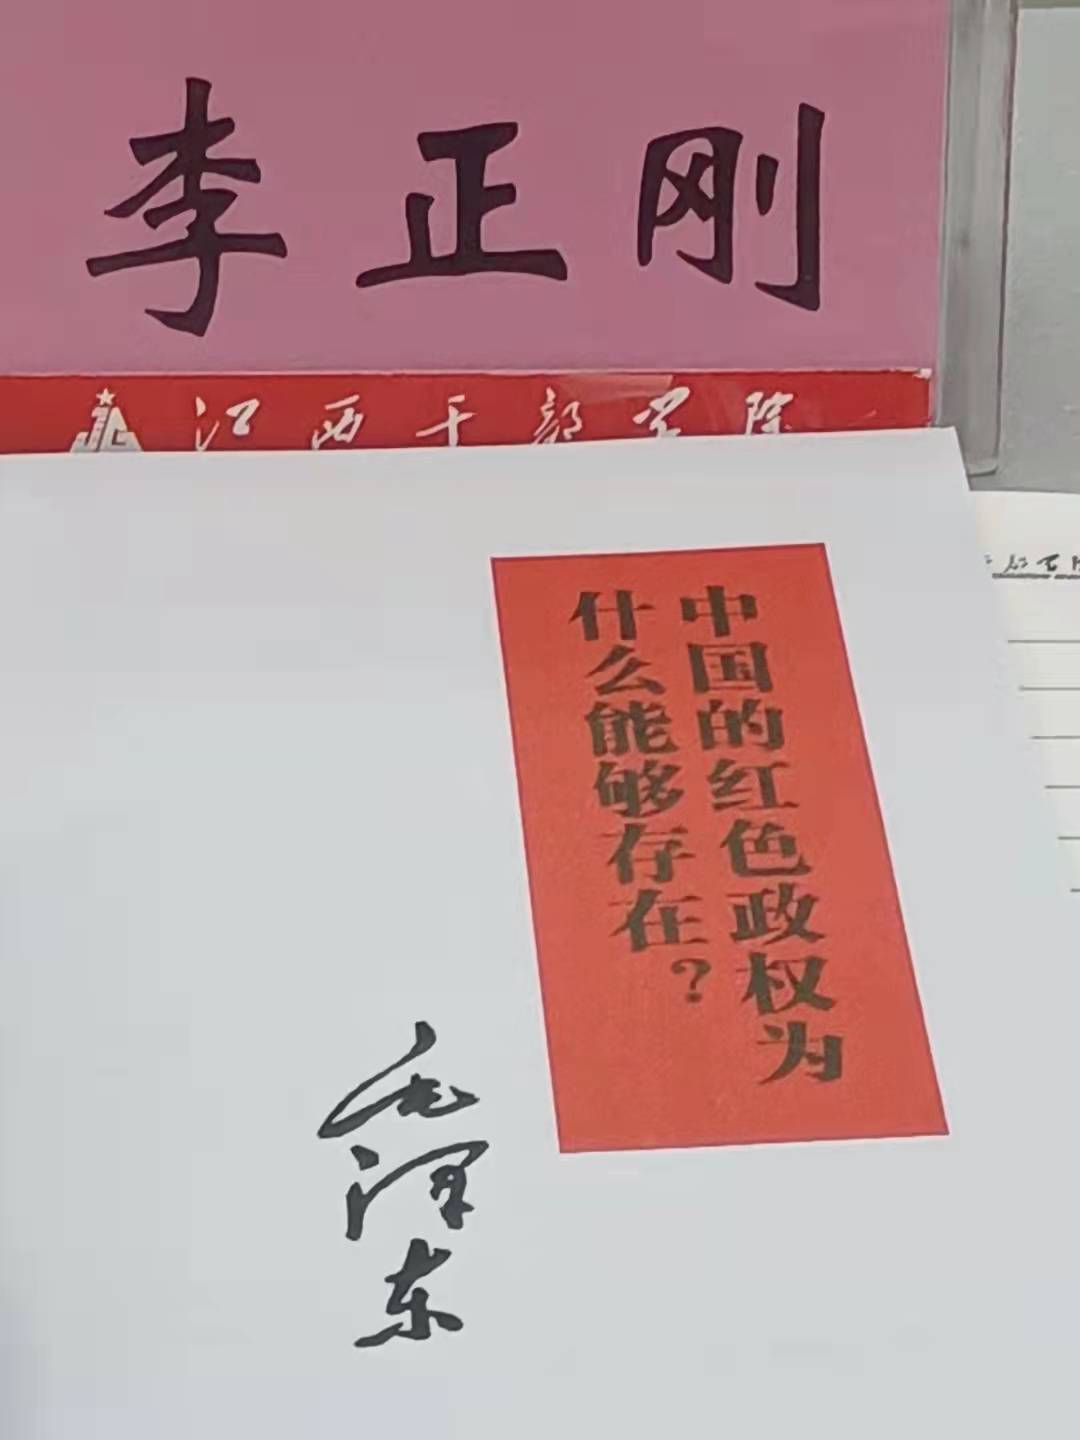 李正刚
江西干部学院
中国的红色政权为
什么能够存在？
毛泽东